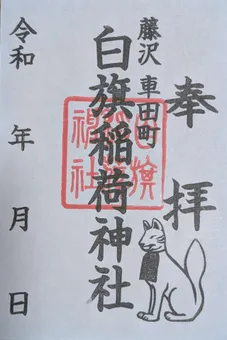 奉拝
藤沢 車田町
白旗稲荷神社
令和 年 月 日